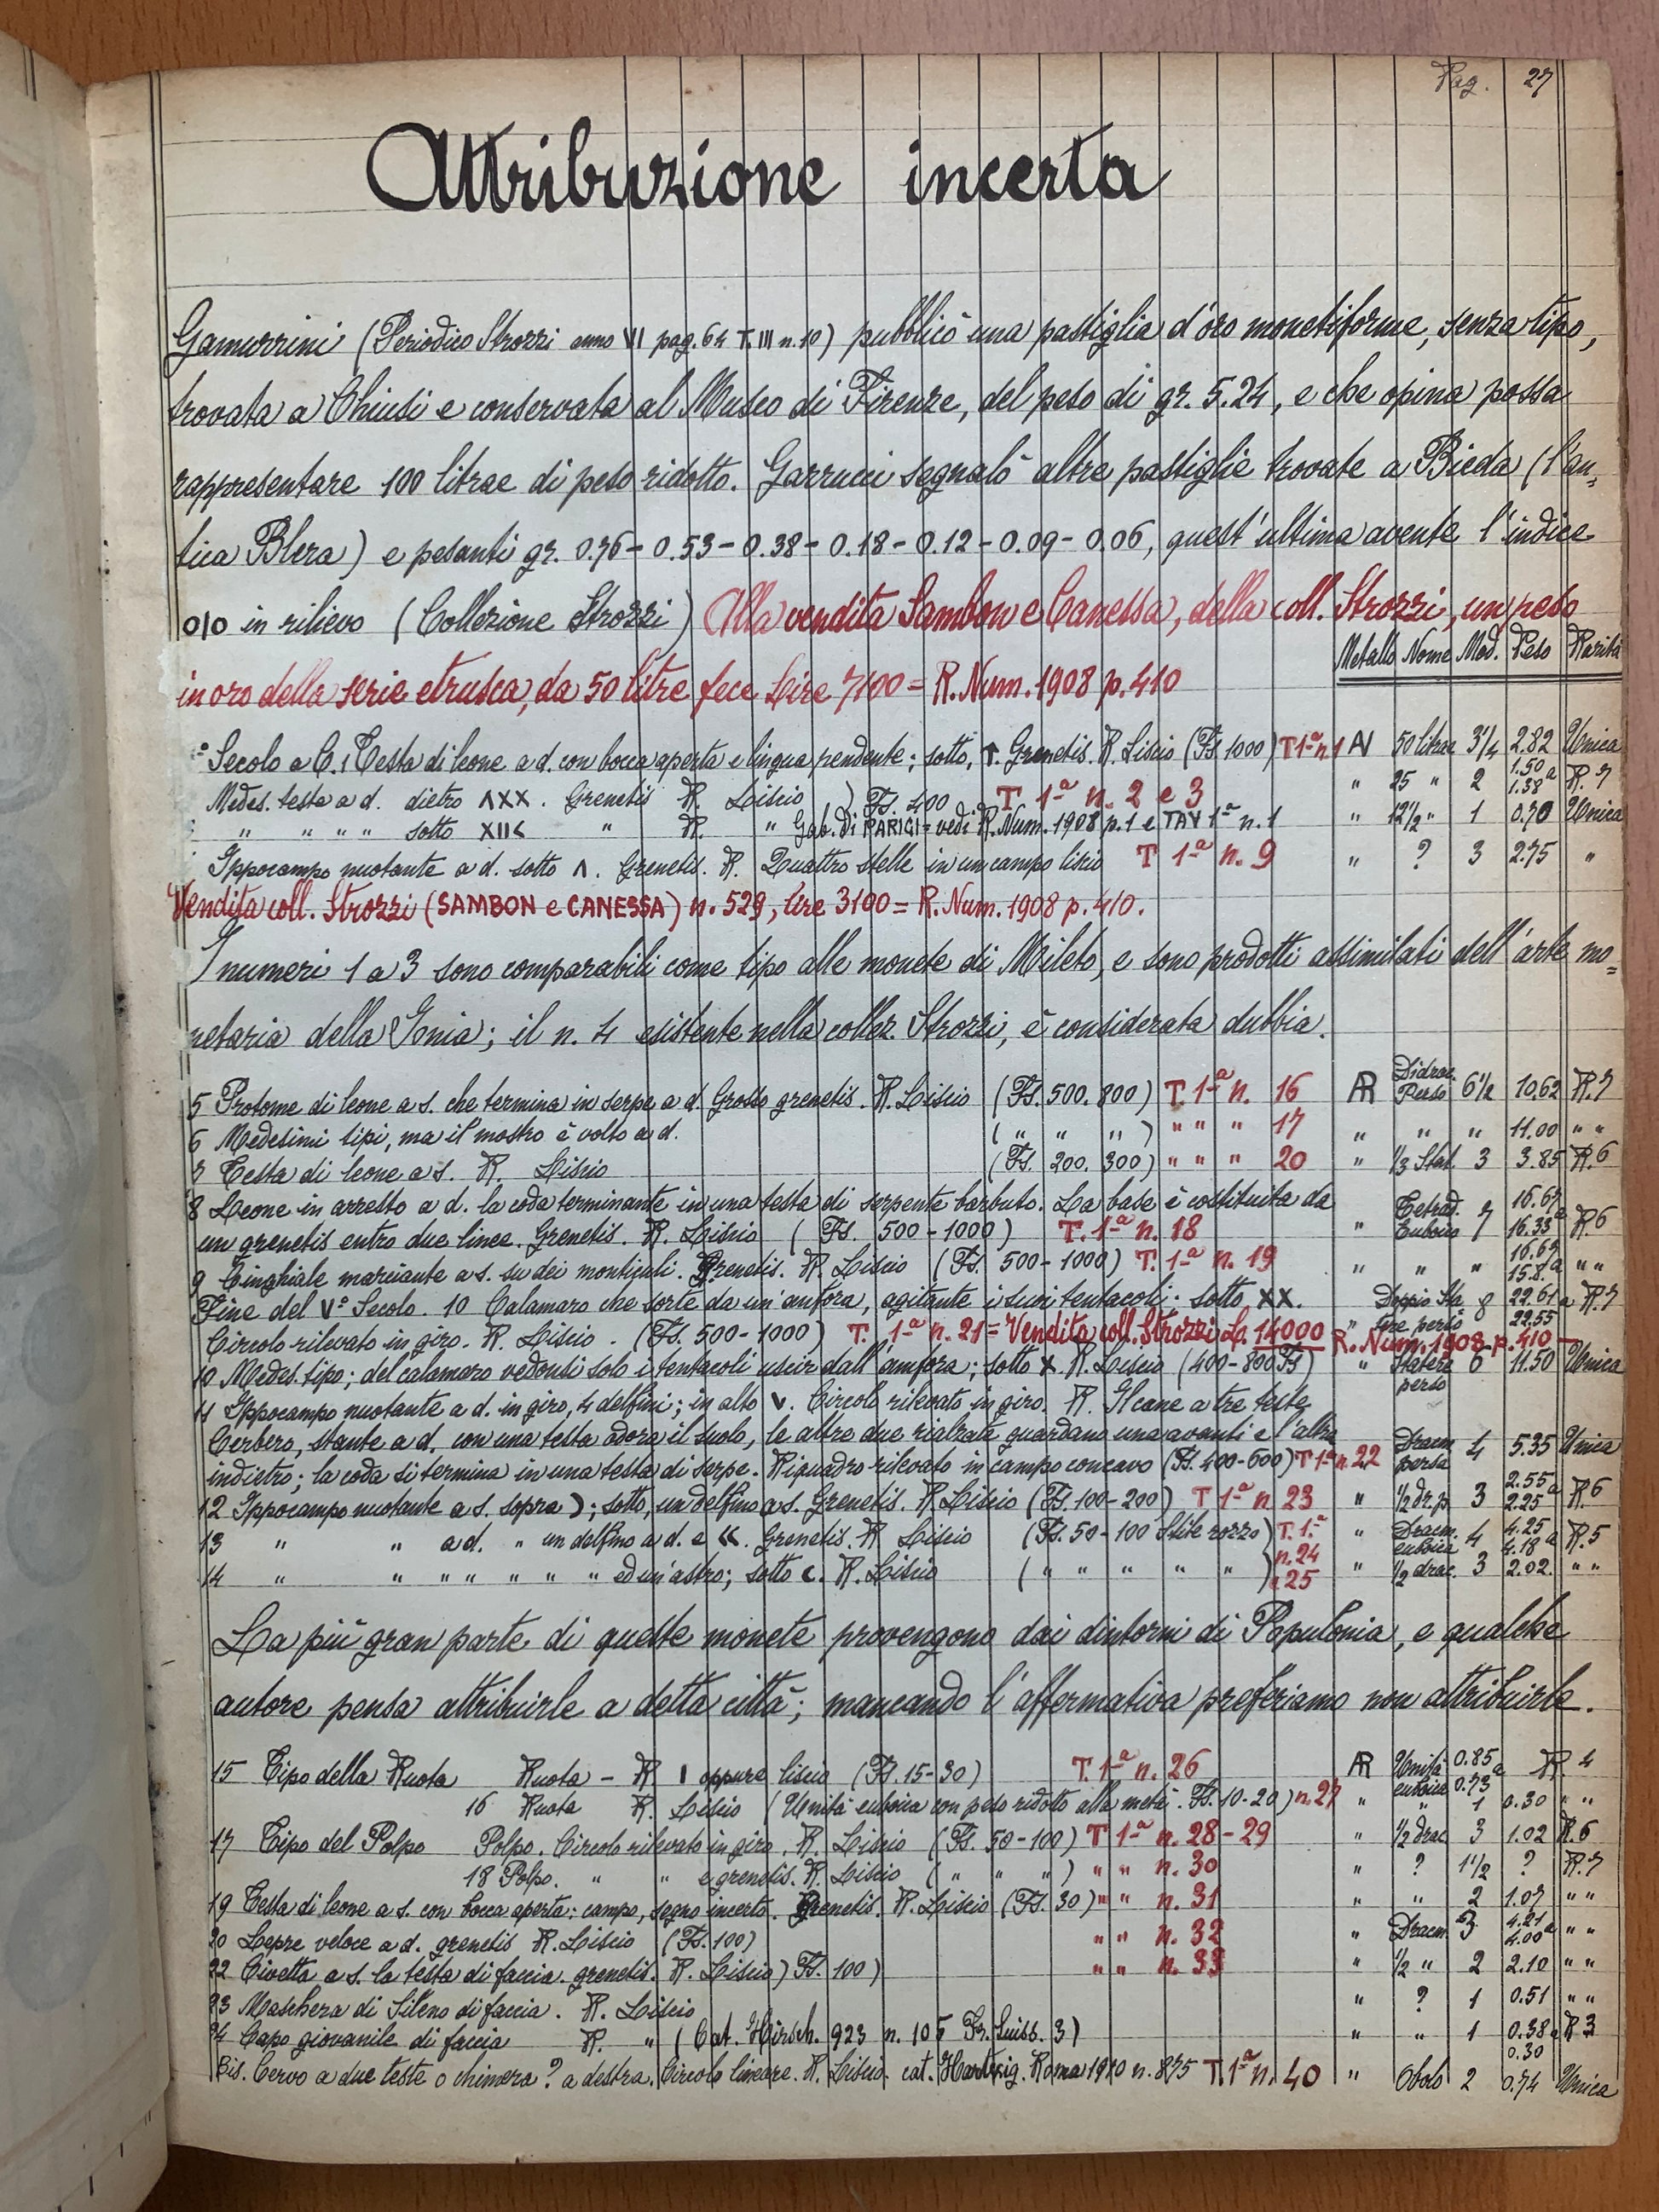 Pag. 27
Attribuzione incerta
Gamurrini (Periodico Strozzi anno VI pag. 64 T. III n. 10) pubblicò una pastiglia d'oro monetiforme, senza tipo,
trovata a Chiusi e conservata al Museo di Firenze, del peso di gr. 5.24, e che opina possa
rappresentare 100 litrae di peso ridotto. Garrucci segnalò altre pastiglie trovate a Bieda (l'an=
tica Blera) e pesanti gr. 0.76 - 0.53 - 0.38 - 0.18 - 0.12 - 0.09 - 0.06, quest'ultima avente l'indice
o|o in rilievo (Collezione Strozzi) Alla vendita Sambon e Canessa, della coll. Strozzi, un peso
in oro della serie etrusca, da 50 litre fece Lire 7100 = R. Num. 1908 p. 410
Metallo Nome Mod. Peso Rarità
Secolo a C. 1 Testa di leone a d. con bocca aperta e lingua pendente; sotto, ↑. Grenetis. R. Liscio (Fs. 1000) T 1ª n. 1 AV 50 litrae 3¼ 2.82 Unica
Medes. testa a d. dietro ΛXX. Grenetis R. Liscio ) Fs. 400 T 1ª n. 2 e 3 " 25 " 2 1.50 a 1.38 R. 7
" " " " sotto XII< " R. " Gab. di PARIGI = vedi R. Num. 1908 p. 1 e TAV 1ª n. 1 " 12½ " 1 0.70 Unica
Ippocampo nuotante a d. sotto Λ. Grenetis. R. Quattro stelle in un campo liscio T 1ª n. 9 " ? 3 2.75 "
Vendita coll. Strozzi (SAMBON e CANESSA) n. 529, lire 3100 = R. Num. 1908 p. 410.
I numeri 1 a 3 sono comparabili come tipo alle monete di Mileto, e sono prodotti assimilati dell'arte mo=
netaria della Ionia; il n. 4 esistente nella collez. Strozzi, è considerata dubbia.
5 Protome di leone a s. che termina in serpe a d. Grosso grenetis. R. Liscio (Fs. 500. 800) T. 1ª n. 16 AR Didrac. Perso 6½ 10.62 R. 7
6 Medesimi tipi, ma il mostro è volto a d. ( " " " ) " " " 17 " " " 11.00 " "
7 Testa di leone a s. R. Liscio (Fs. 200. 300) " " " 20 " ⅓ Stat. 3 3.85 R. 6
8 Leone in arresto a d. la coda terminante in una testa di serpente barbuto. La base è costituita da
un grenetis entro due linee. Grenetis. R. Liscio ( Fs. 500 - 1000 ) T. 1ª n. 18 " Tetrad. Euboico 7 16.67 a 16.33 R. 6
9 Cinghiale marciante a s. su dei monticuli. Grenetis. R. Liscio (Fs. 500 - 1000) T. 1ª n. 19 " " " 16.67 a 15.8 " "
Fine del V° Secolo. 10 Calamaro che sorte da un'anfora, agitante i suoi tentacoli; sotto XX. " Doppio Sta- 8 22.61 a R. 7
Circolo rilevato in giro. R. Liscio. (Fs. 500 - 1000) T. 1ª n. 21 = Vendita coll. Strozzi L. 14000 R. Num. 1908 p. 410 " tere perso 22.55
10 Medes. tipo; del calamaro vedonsi solo i tentacoli uscir dall'amfora; sotto X. R. Liscio (400 - 800 Fs) " Statere perso 6 11.50 Unica
11 Ippocampo nuotante a d. in giro, 4 delfini; in alto V. Circolo rilevato in giro. R. Il cane a tre teste
Cerbero, stante a d. con una testa odora il suolo, le altre due rialzate guardano una avanti e l'altra
indietro; la coda si termina in una testa di serpe. Riquadro rilevato in campo concavo (Fs. 400 - 600) T 1ª n. 22 " Dracm. persa 4 5.35 Unica
12 Ippocampo nuotante a s. sopra ); sotto, un delfino a s. Grenetis. R. Liscio (Fs. 100 - 200) T 1ª n. 23 " ½ dr. p. 3 2.55 a 2.25 R. 6
13 " " a d. " un delfino a d. e <<. Grenetis. R Liscio (Fs. 50 - 100 Stile rozzo) T. 1ª n. 24 " Dracm. euboica 4 4.25 a 4.18 R. 5
14 " " " " " " " ed un'astro; sotto c. R. Liscio ( " " " " " ) " 25 " ½ drac. 3 2.02. " "
La più gran parte di queste monete provengono dai dintorni di Populonia, e qualche
autore pensa attribuirle a detta città; mancando l'affermativa preferiamo non attribuirle.
15 Tipo della Ruota Ruota - R I oppure liscio (Fs. 15-30) T. 1ª n. 26 AR Unità euboica 0.85 a 0.73 R. 4
16 Ruota R. Liscio (Unità euboica con peso ridotto alla metà. Fs. 10-20) n. 27 " " 1 0.30 " "
17 Tipo del Polpo Polpo. Circolo rilevato in giro. R. Liscio (Fs. 50 - 100) T 1ª n. 28 - 29 " ½ drac 3 1.02 R. 6
18 Polpo. " " e grenetis. R. Liscio ( " " " ) " " n. 30 " ? 1½ ? R. 7
19 Testa di leone a s. con bocca aperta; campo, segno incerto. Grenetis. R. Liscio (Fs. 30) " " n. 31 " " 2 1.07 " "
20 Lepre veloce a d. grenetis R. Liscio (Fs. 100) " " n. 32 " Dracm. 3 4.21 a 4.00 " "
22 Civetta a s. la testa di faccia. grenetis. R. Liscio) Fs. 100) " " n. 33 " ½ " 2 2.10 " "
23 Maschera di Sileno di faccia. R. Liscio " ? 1 0.51 " "
24 Capo giovanile di faccia R. " (Cat. Hirsch. 923 n. 105 Fr. Suiss. 3) " " 1 0.38 a 0.30 R 3
Bis. Cervo a due teste o chimera? a destra. Circolo lineare. R. Liscio. cat. Hartwig. Roma 1910 n. 875 T. 1ª n. 40 " Obolo 2 0.74 Unica